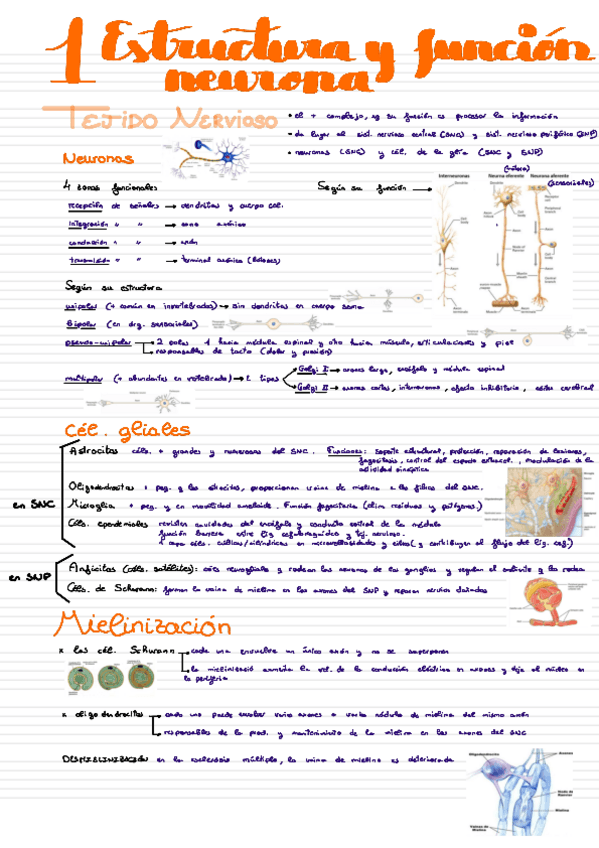 1 Estructura y función
neurona
TEJIDO NERVIOSO
• el + complejo, ya su función es procesar la información
• da lugar al sist. nervioso central (SNC) y sist. nervioso periférico (SNP)
• neuronas (SNC) y cél. de la glía (SNC y SNP)
Neuronas
4 zonas funcionales
recepción de señales → dendritas y cuerpo cel.
integración " " → cono axónico
conducción " " → axón
transmisión " " → terminal axónica (botones)
Según su función →
(motora)
(sensoriales)
Interneuronas
Neurona eferente
Neurona aferente
Según su estructura
unipolar (+ común en invertebrados) → sin dendritas en cuerpo soma
Bipolar (en órg. sensoriales)
pseudo-unipolar → 2 polos 1 hacia médula espinal y otro hacia músculo, articulaciones y piel
→ responsables de tacto (dolor y presión)
multipolar (+ abundantes en vertebrado) → 2 tipos
Golgi I → axones largo, encéfalo y médula espinal
Golgi II → axones cortos, interneuronas, efecto inhibitorio, cortex cerebral
Cél. gliales
en SNC
Astrocitos céls. + grandes y numerosas del SNC. Funciones: soporte estructural, protección, reparación de lesiones,
fagocitosis, control del espacio extracel., modulación de la
actividad sináptica
Oligodendrocitos + peq. q los atocitos, proporcionan vaina de mielina a las fibras del SNC.
Microglía + peq. y en movilidad ameboide. Función fagocitaria (elim residuos y patógenos)
Céls. ependimales revisten cavidades del encéfalo y conducto central de la médula
función barrera entre líq cefalorraquídeo y tej. nervioso.
+ cúbicas/cilíndricas en microvellosidades y cilios (y contribuyen al flujo del líq. cef.)
en SNP
Anficitos (céls. satélites): céls neuroglíales q rodean las neuronas de los ganglios y regulan el ambiente q los rodea
Céls. de Schwann: forman la vaina de mielina en los axones del SNP y reparan nervios dañados
Mielinización
x las cél. Schwann → cada una envuelve un único axón y no se superponen
→ la mielinizació aumenta la vel. de la conducción eléctrica en axones y deja el núcleo en
la periferia
x oligodendrocitos → cada uno puede envolver varios axones o varios nódulo de mielina del mismo axón
→ responsables de la prod. y mantenimiento de la mielina en los axones del SNC
DESMIELINIZACIÓN en la esclerosis múltiple, la vaina de mielina es deteriorada
Oligodendrocito
Axones
Nodo de
Ranvier
Mielina
Vainas de
Mielina